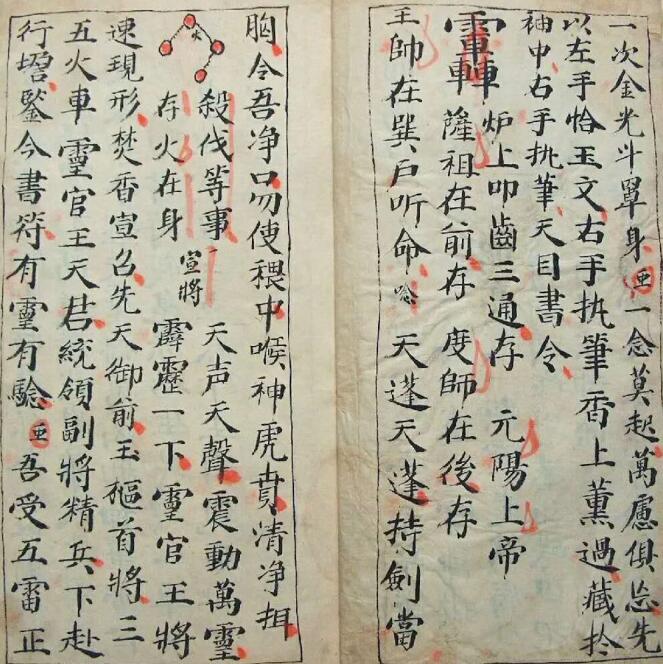 一次金光斗罩身 一念莫起萬慮俱忘先
以左手恰玉文右手执筆香上薰过藏扵
袖中右手执筆天目書令
炉上叩齒三通存 元陽上帝
隆祖在前存 度師在後存
王帥在巽户听命 念 天蓬天蓬持劍當
胸令吾净口勿使穢中喉神虎賁清净揖
殺伐等事 一 天声天聲震動萬靈
火
存火在身 宣將 霹靂一下靈官王將
速現形焚香宣召先天御前玉樞首將三
五火車靈官王天君統領副將精兵下赴
行壇鑒今書符有靈有驗 吾受五雷正